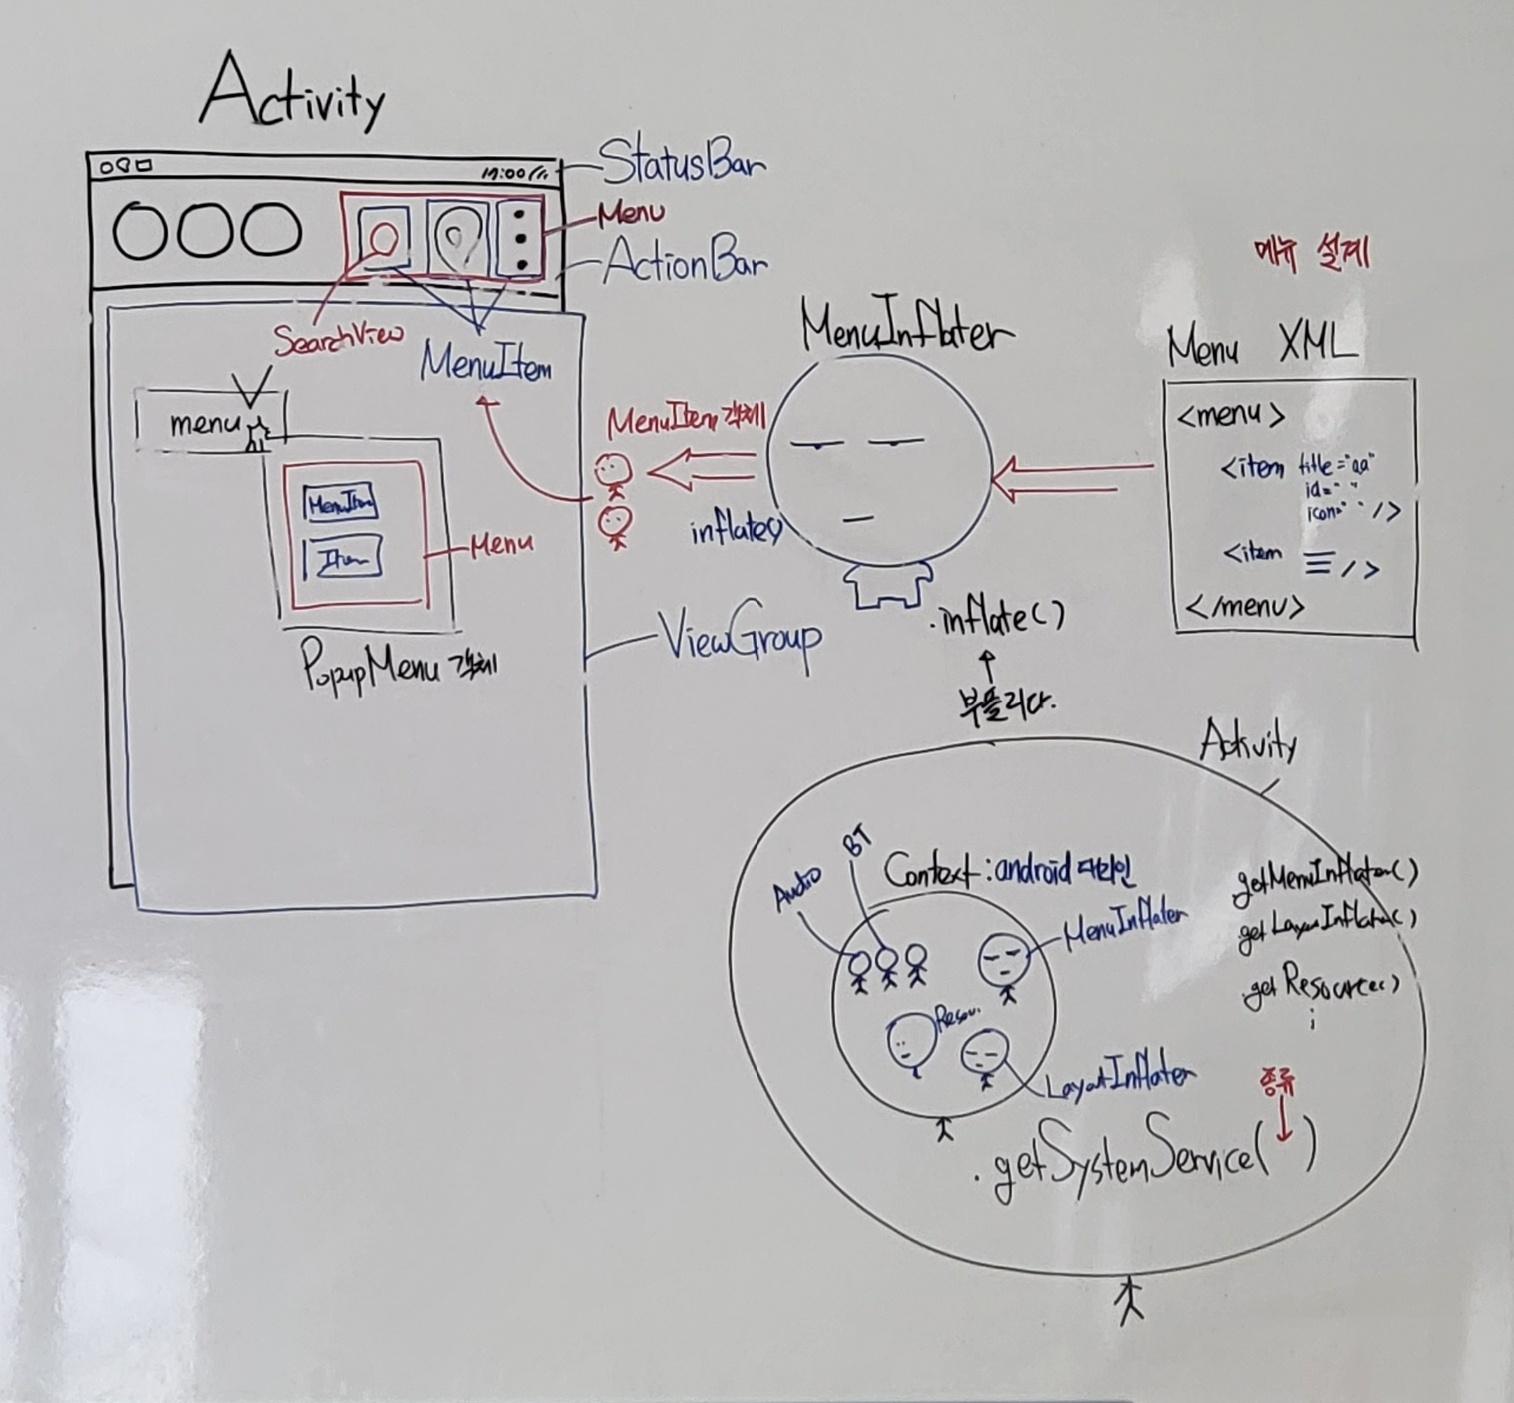 Activity
StatusBar
Menu
ActionBar
SearchView
MenuItem
menu
MenuItem
Item
Menu
PopupMenu 객체
ViewGroup
MenuItem 객체
inflate()
MenuInflater
.inflate()
부풀리다.
메뉴 설계
Menu XML
<menu>
<item title="aa"
id=" "
icon=" " />
<item />
</menu>
Activity
Audio
BT
Context : android 대리인
MenuInflater
Resou.
LayoutInflater
getMenuInflater()
getLayouInflater()
.getResource()
종류
.getSystemService( )